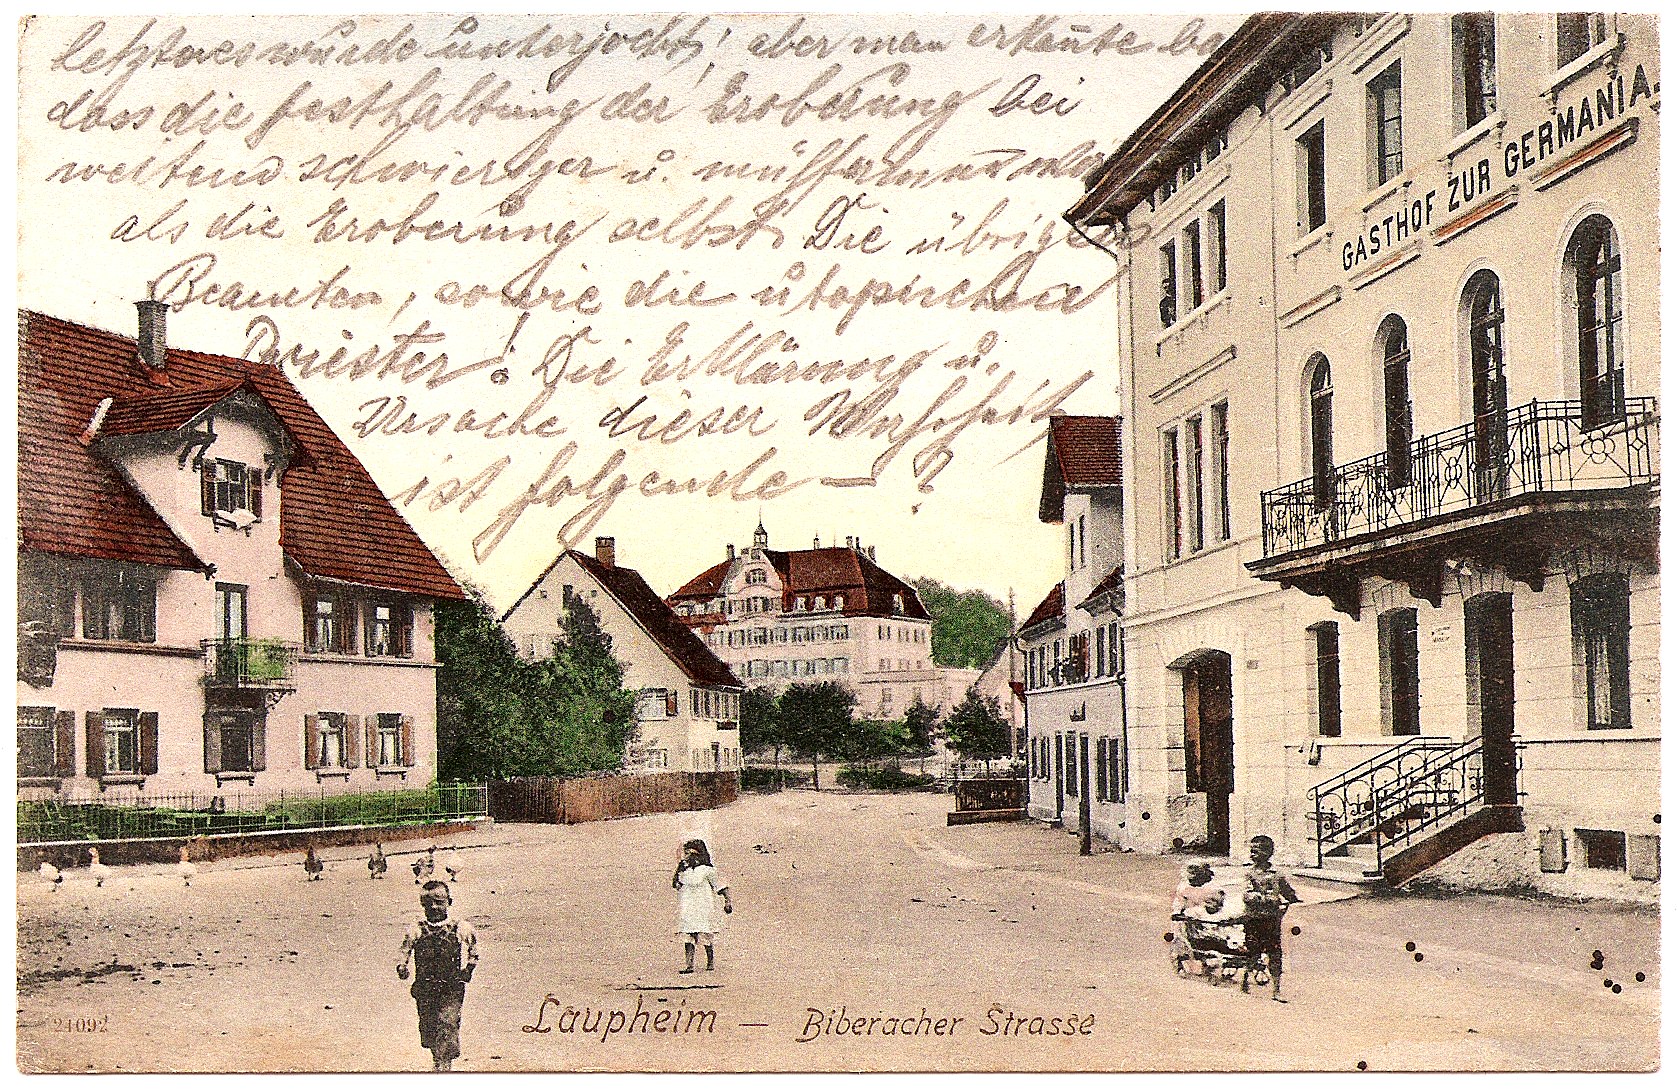 letzteres wurde unterjocht; aber man erkannte
dass die festhaltung der Eroberung bei
weitem schwieriger u.
als die Eroberung selbst. Die übrigen
Beamten, sowie die utopischen
Priester! Die Erklärung u.
Ursache dieser
ist folgende — ?
GASTHOF ZUR GERMANIA.
21092
Laupheim — Biberacher Strasse